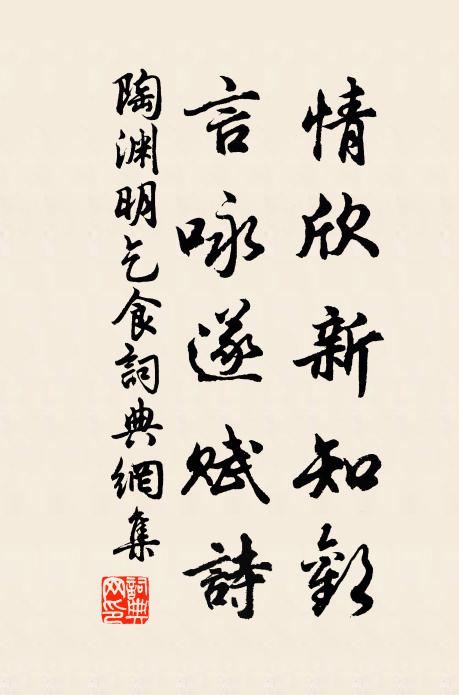 情欣新知歡
言咏遂賦詩
陶渊明乞食詞典網集
詞典
网印